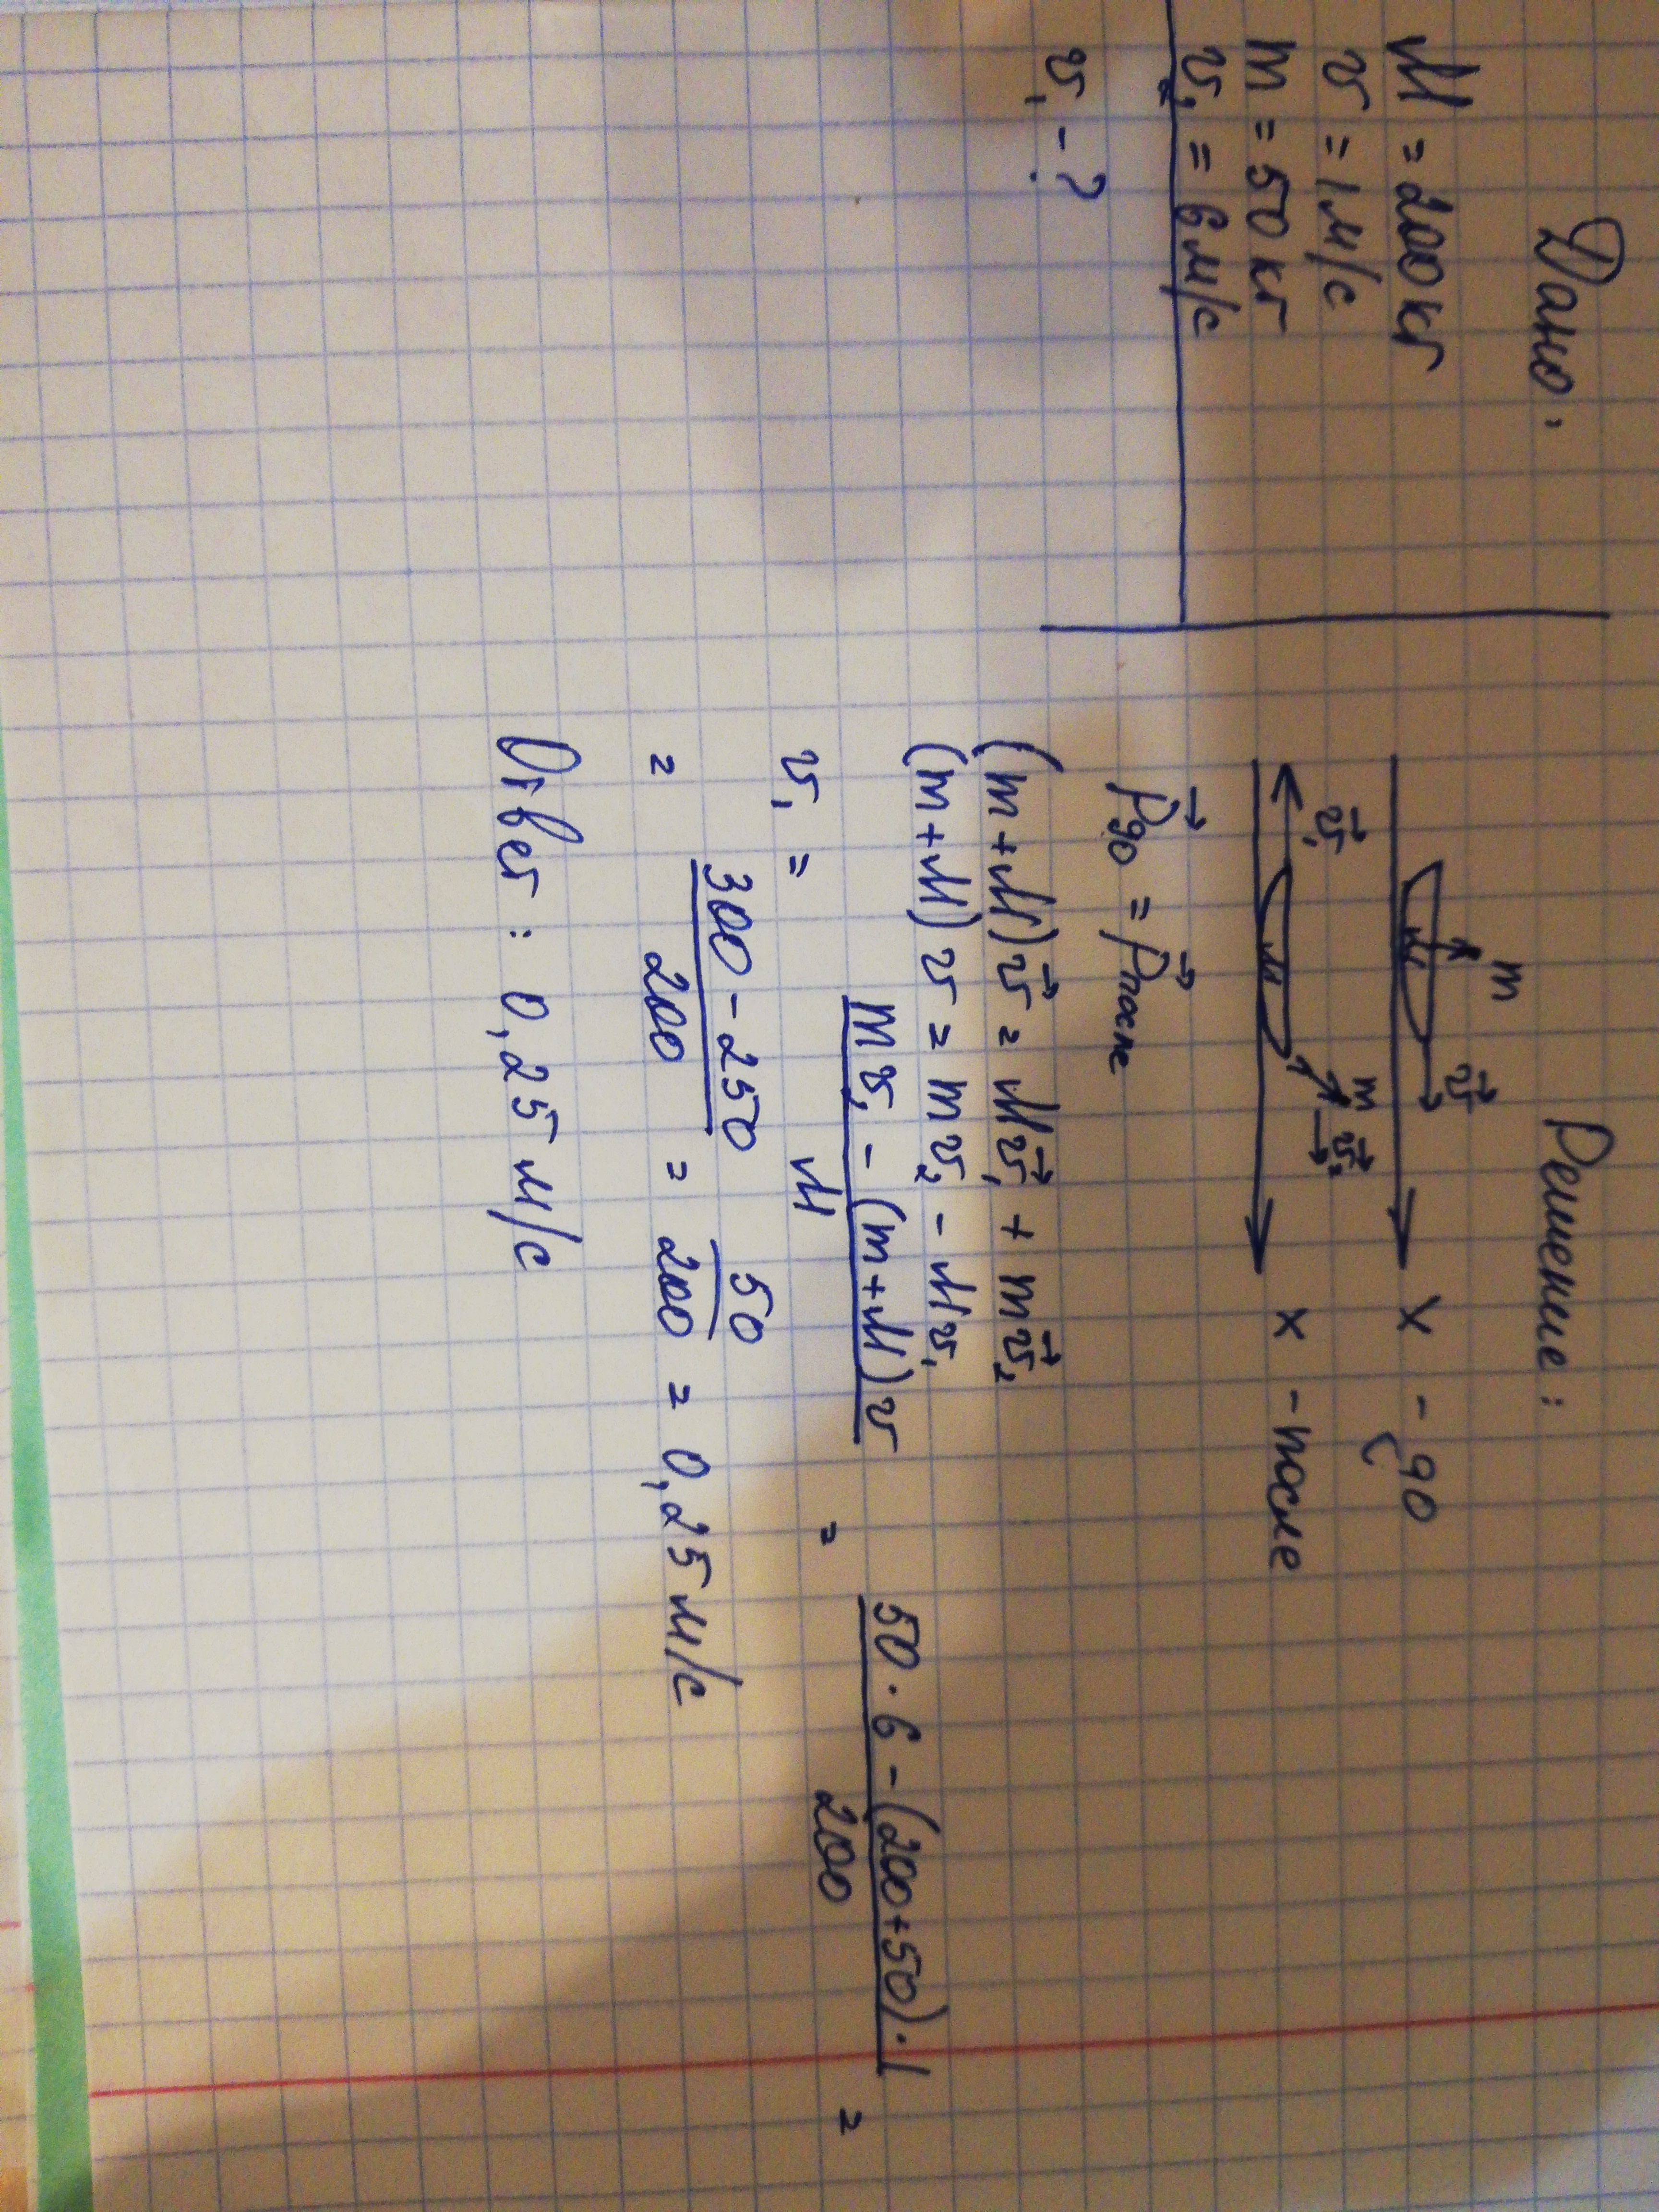 Дано:
M = 200 кг
v = 1 м/с
m = 50 кг
v₂ = 6 м/с
v₁ - ?
Решение:
m v⃗
M x - до
v⃗₁ m v⃗₂
M x - после
p⃗до = p⃗после
(m + M)v⃗ = Mv⃗₁ + mv⃗₂
(m + M)v = mv₂ - Mv₁
v₁ = (mv₂ - (m + M)v) / M = (50 · 6 - (200 + 50) · 1) / 200 =
= (300 - 250) / 200 = 50 / 200 = 0,25 м/с
Ответ: 0,25 м/с